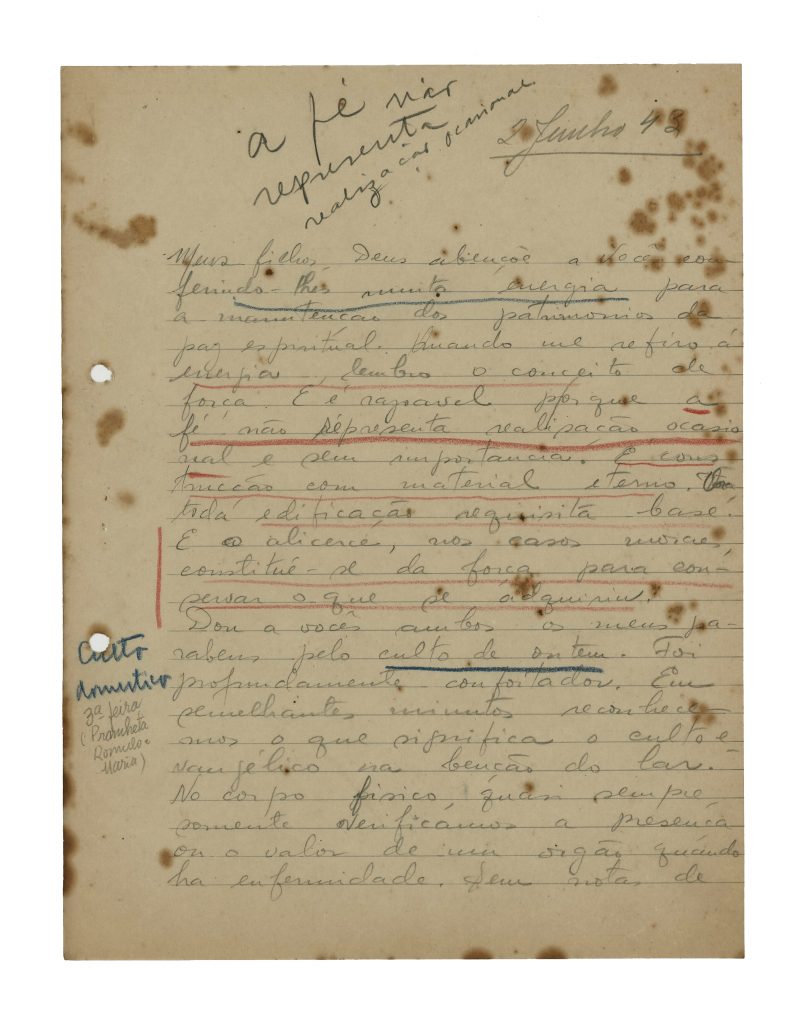 a fé não
representa
realização ocasional
2 Junho 43
Meus filhos, Deus abençôe a vocês con-
ferindo-lhes muita energia para
a manutenção dos patrimonios da
paz espiritual. Quando me refiro á
energia, lembro o conceito de
força. E é razoavel porque a
fé não representa realisação ocasio
nal e sem importancia. É cons
trucção com material eterno.
toda edificação requisita base.
E o alicerce, nos casos moraes,
constitué-se da força para con-
servar o que se adquiriu.
Dou a vocês ambos os meus pa-
rabens pelo culto de ontem. Foi
profundamente confortador. Em
semelhantes minutos reconhece-
mos o que significa o culto e
vangélico na benção do lar.
No corpo fisico, quasi sempre
somente verificámos a presença
ou o valor de um orgão quando
ha enfermidade. Sem notas de
Culto
domestico
3ª feira
(Prancheta
Romulo e
Maria)